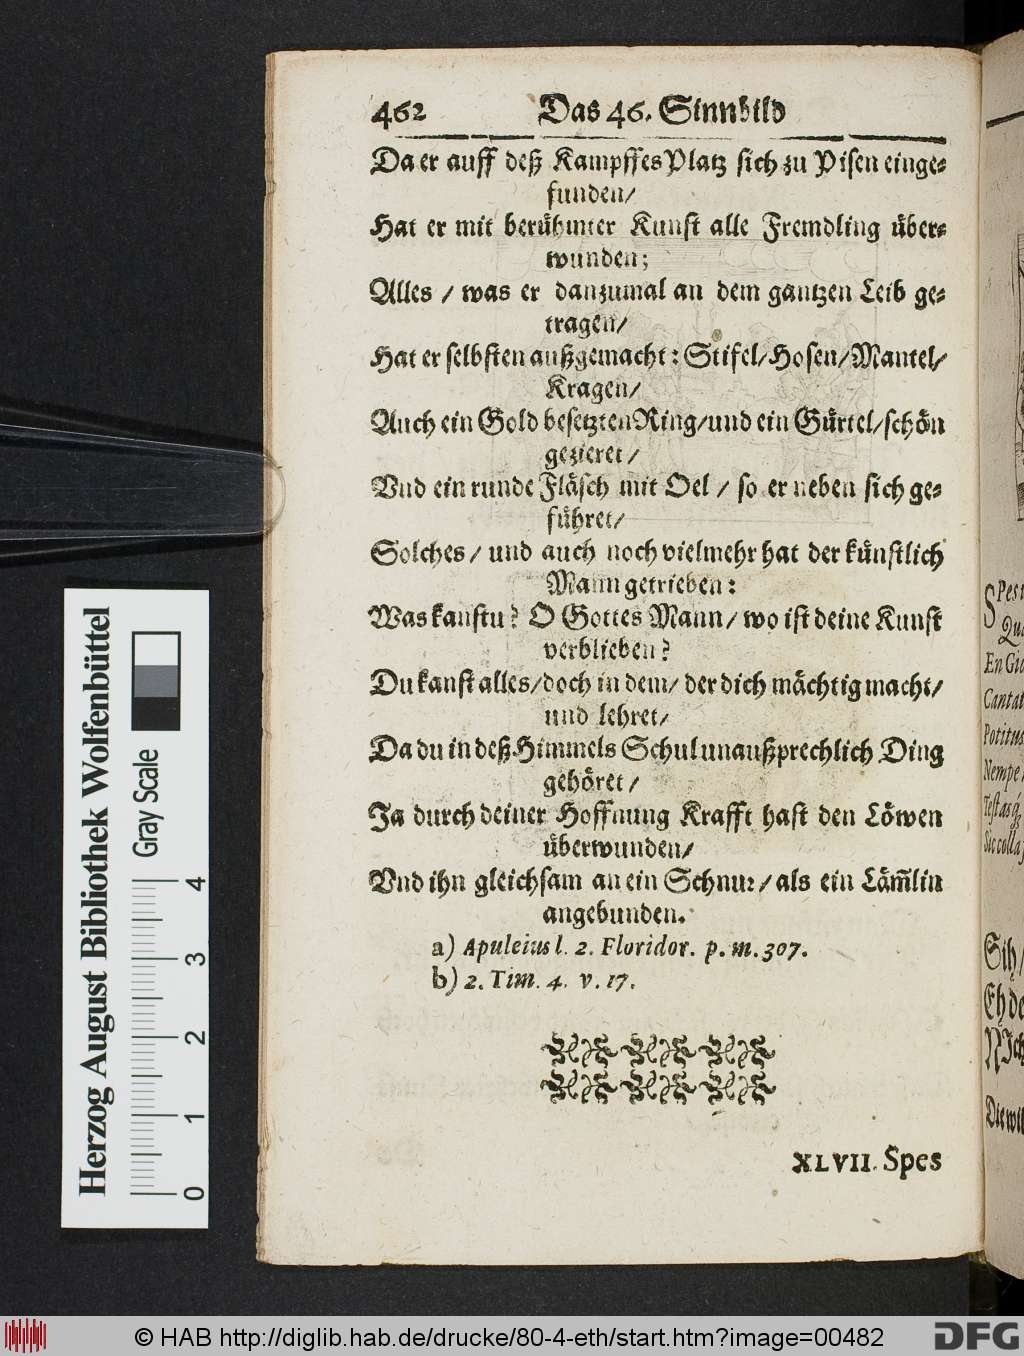 462 Das 46. Sinnbild
Da er auff deß Kampffes Platz sich zu Pisen einge-
funden/
Hat er mit berühmter Kunst alle Fremdling über-
wunden;
Alles / was er danzumal an dem gantzen Leib ge-
tragen/
Hat er selbsten außgemacht: Stifel/Hosen/Mantel/
Kragen/
Auch ein Gold besetzten Ring/und ein Gürtel/schön
gezieret /
Vnd ein runde Fläsch mit Oel / so er neben sich ge-
führet/
Solches / und auch noch vielmehr hat der künstlich
Mann getrieben:
Was kanstu? O Gottes Mann/ wo ist deine Kunst
verblieben?
Du kanst alles/doch in dem/ der dich mächtig macht/
und lehret/
Da du in deß Himmels Schul unaußprechlich Ding
gehöret /
Ja durch deiner Hoffnung Krafft hast den Löwen
überwunden/
Vnd ihn gleichsam an ein Schnur/ als ein Läm̃lin
angebunden.
a) Apuleius l. 2. Floridor. p. m. 307.
b) 2. Tim. 4. v. 17.
XLVII. Spes
Spes
Qua
En Gi
Cantat
Potitus
Nempe
Sih/
Eh de
Nich
Die wil
Herzog August Bibliothek Wolfenbüttel
Gray Scale
0 1 2 3 4
© HAB http://diglib.hab.de/drucke/80-4-eth/start.htm?image=00482
DFG